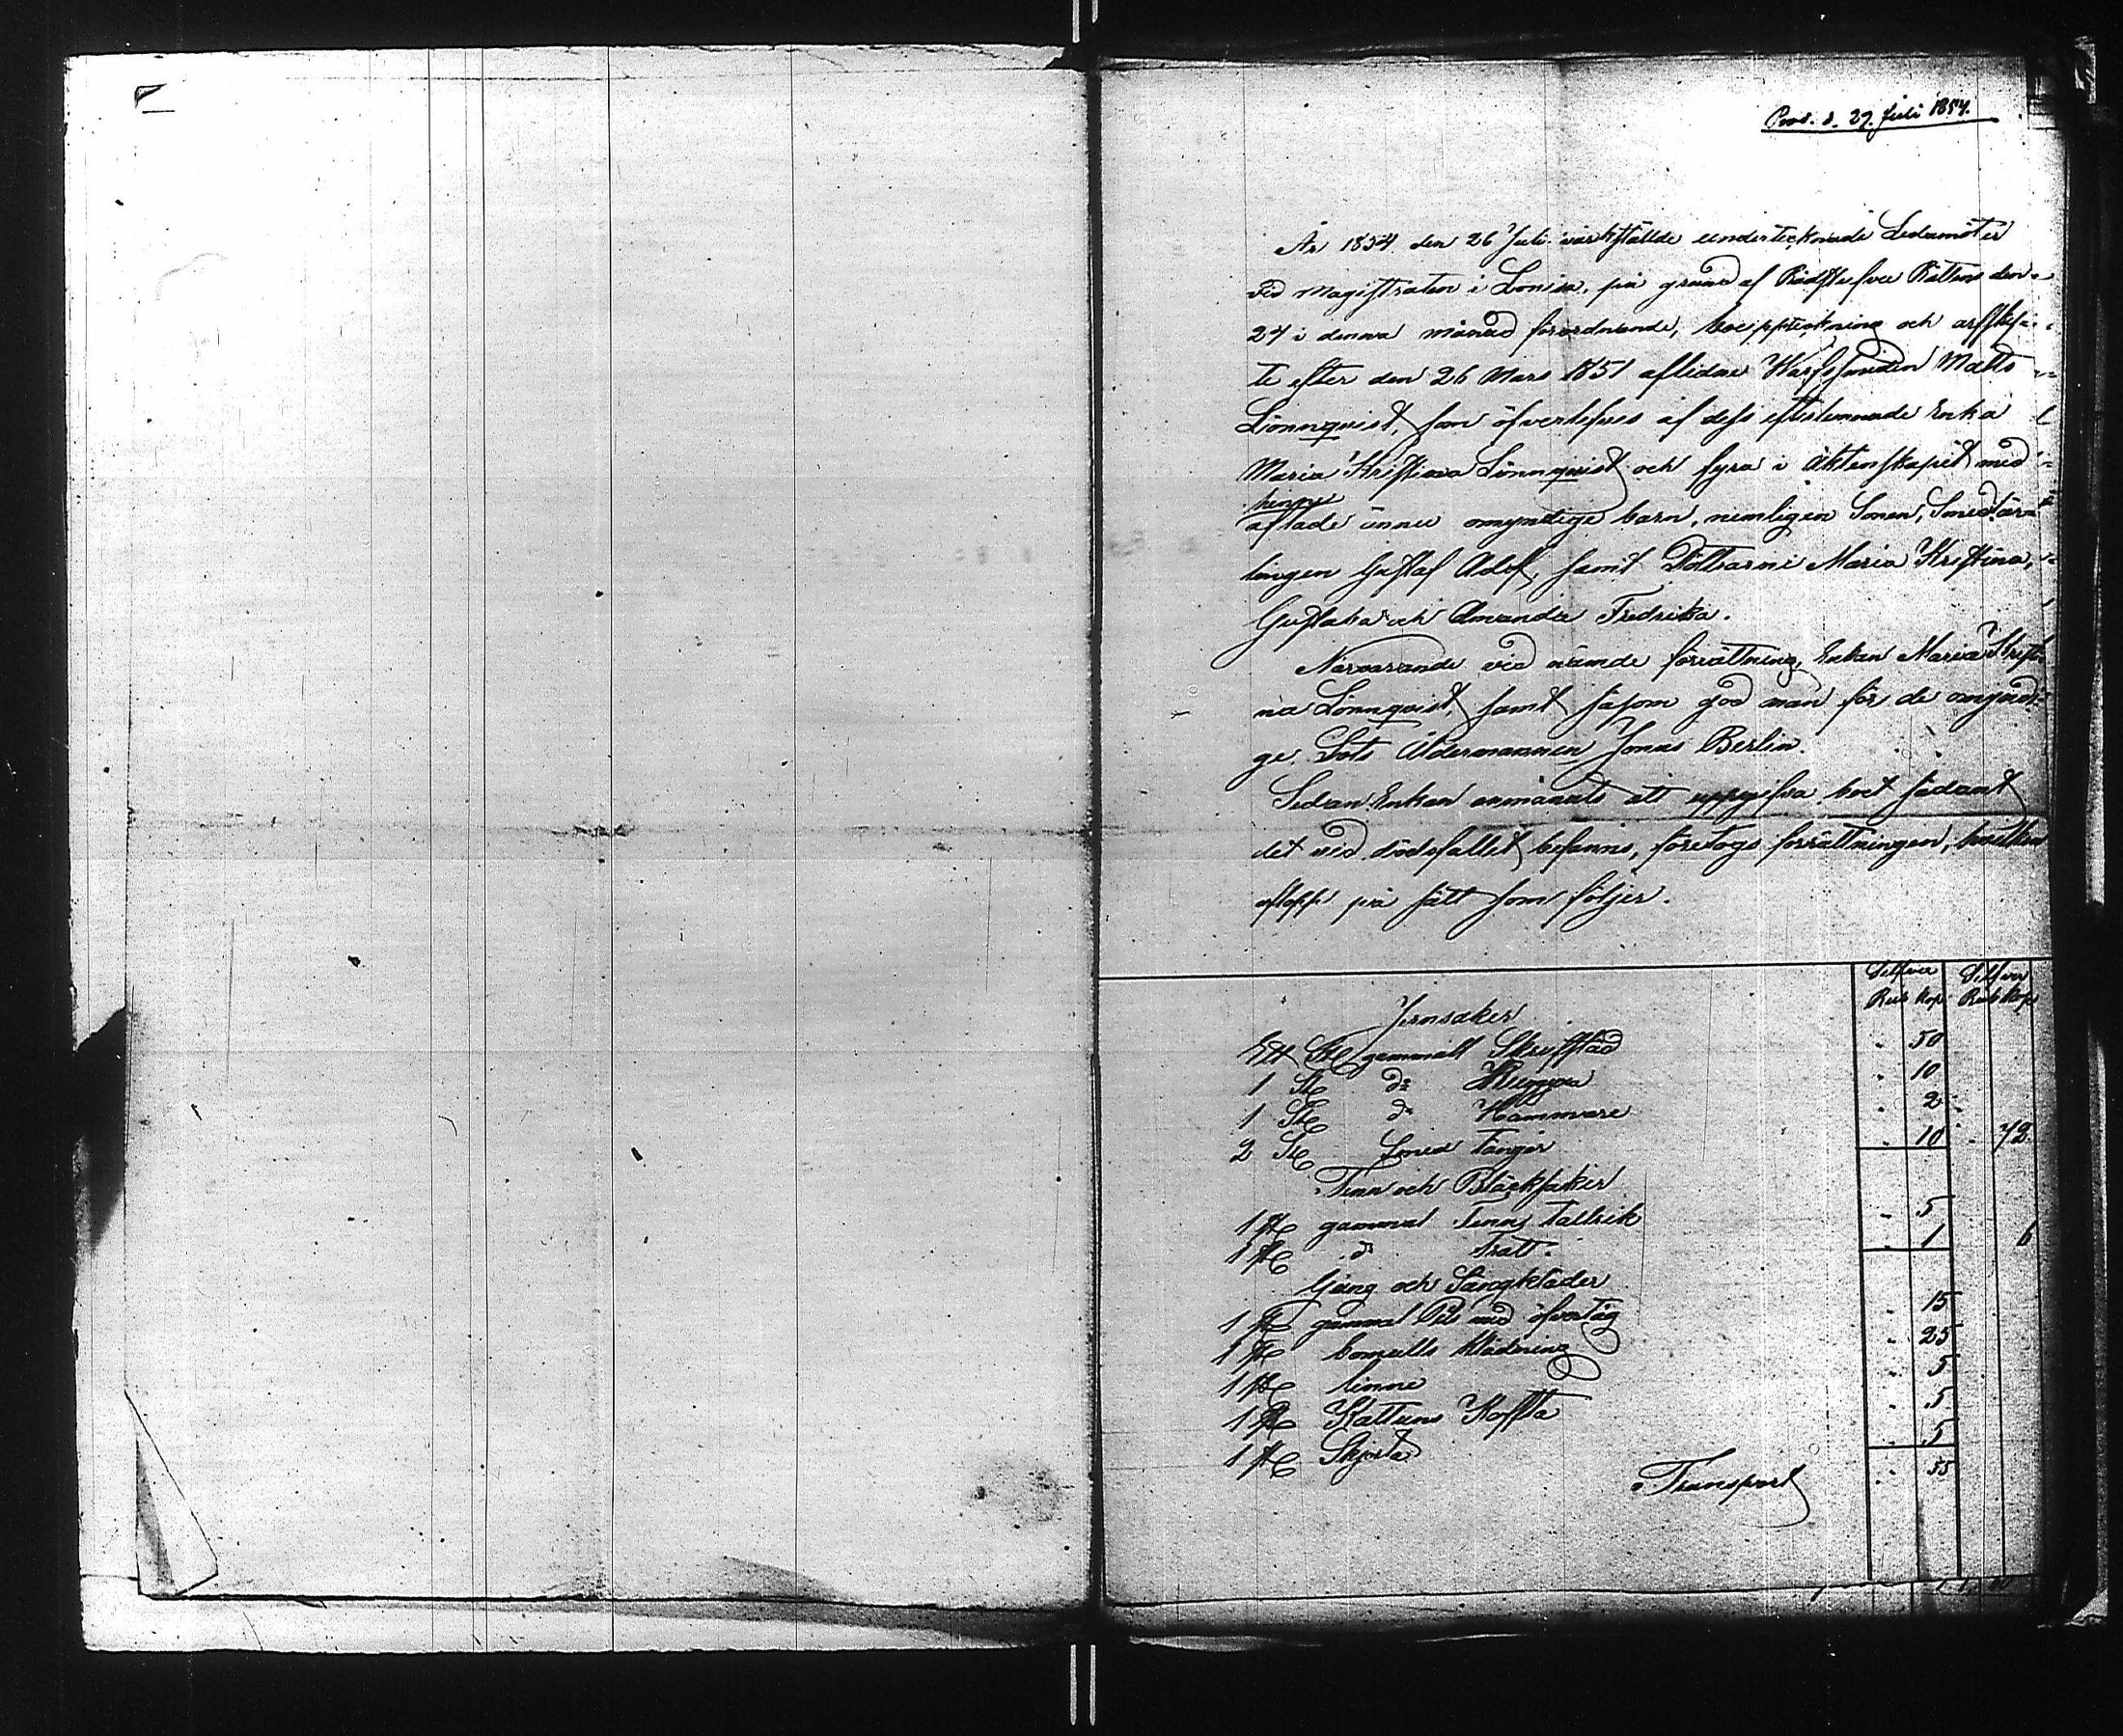 Prod. d. 27. Juli 1854.
År 1854 den 26 Juli värkställde undertecknade Ledamöter
vid Magistraten i Lovisa, på grund af Rådstufvu Rättens den
24 i denna månad förordnande, bouppteckning och arfskif-
te efter den 26 Mars 1851 aflidne Matts
Lönnqvist, som öfverlefves af dess efterlemnade Enka
Maria Kristina Lönnqvist och fyra i äktenskapet med
henne
aflade ännu omyndige barn, nemligen Sonen, Smedslär-
lingen Gustaf Adolf, samt Döttrarne Maria Kristina,
Gustava och Amanda Fredrika.
Närvarande vid nämde förrättning, Enkan Maria Kristi-
na Lönnqvist, samt såsom god man för de omyndi-
ge Lots Åldermannen Jonas Berlin.
Sedan Enkan anmanats att uppgifva boet sådant
det vid dödsfallet befanns, företogs förrättningen, hvilken
aflopp på sätt som följer.
Silfver Silfver
Rub Kop Rub Kop
Jernsaker
Ett St gammalt Skrufstäd " 50
1 St do " 10
1 St do Hammare " 2
2 St Smed Tänger " 10 " 72
Tenn och Bläcksaker
1 St gammal Tenn Tallrik " 5
1 St do Tratt " 1 6
Gång och Sängkläder
1 St gammal Päls med öfvertåg " 15
1 St bomulls Klädning " 25
1 St linne " 5
1 St Kattuns Kofta " 5
1 St Skjorta " 5
Transport " 55